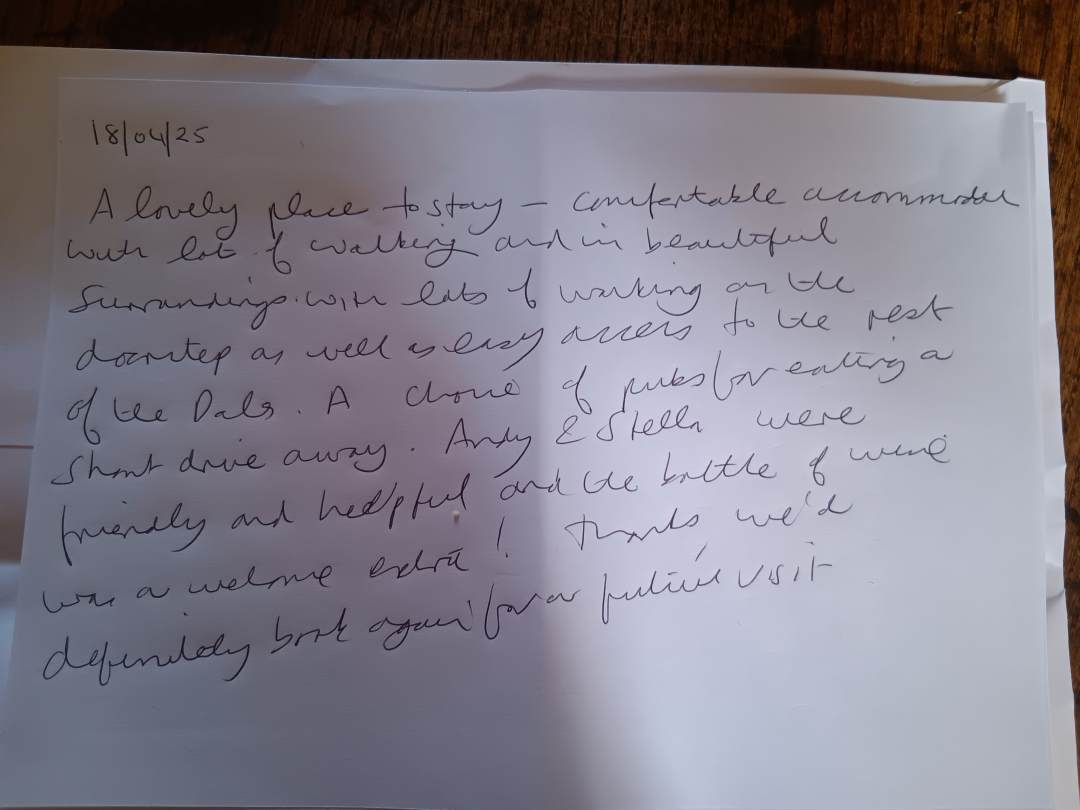 18/04/25
A lovely place to stay – comfortable accommodation
with lot of walking and in beautiful
surroundings. with lots of walking on the
doorstep as well as easy access to the rest
of the Dales. A choice of pubs for eating a
short drive away. Andy & Stella were
friendly and helpful and the bottle of wine
was a welcome extra! Thanks we'd
definitely book again for a future visit